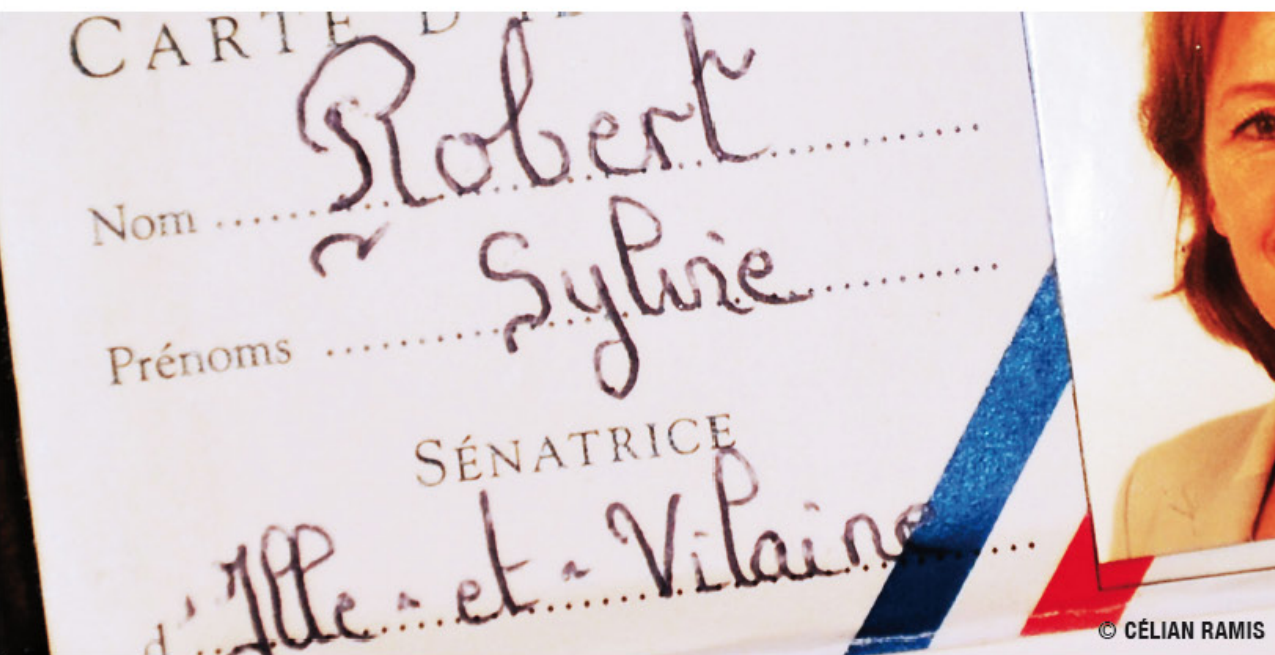 CARTE D'
Nom ........ Robert ........
Prénoms ........ Sylvie ........
SÉNATRICE
d'Ille-et-Vilaine
© CÉLIAN RAMIS